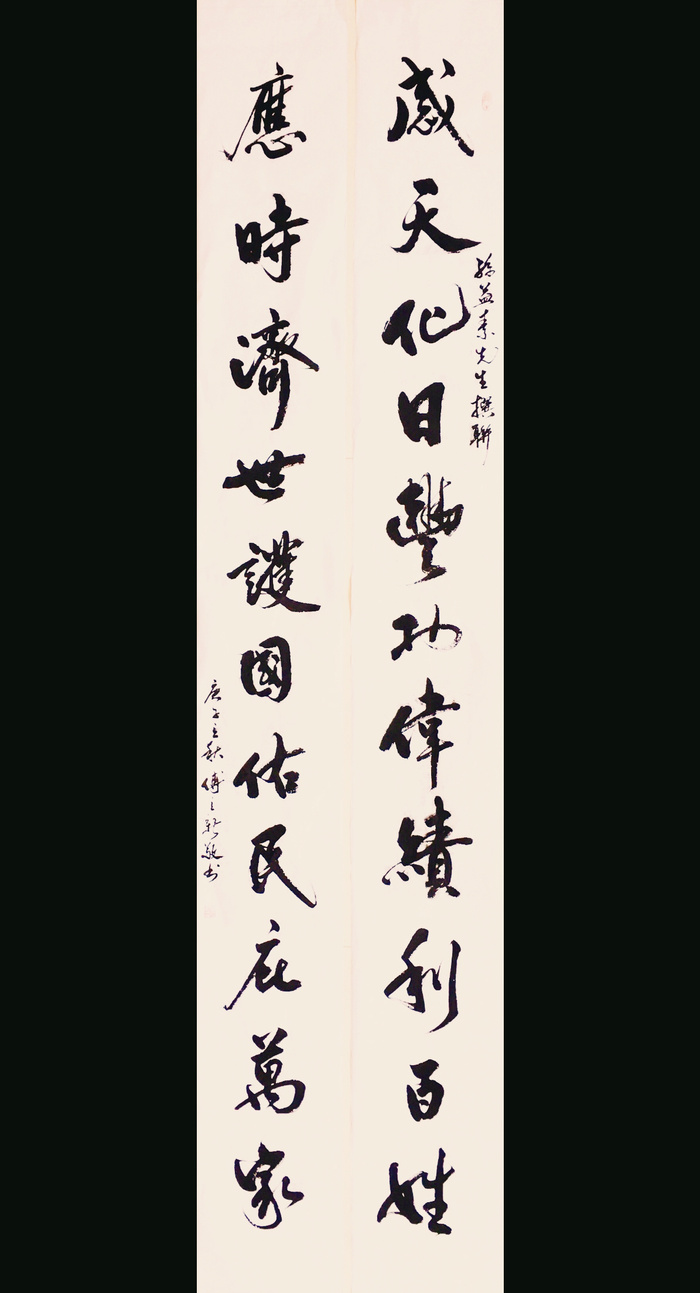 感天化日豐功偉績利百姓
益素先生撰聯
應時濟世護國佑民庇萬家
庚子立秋傅敬書